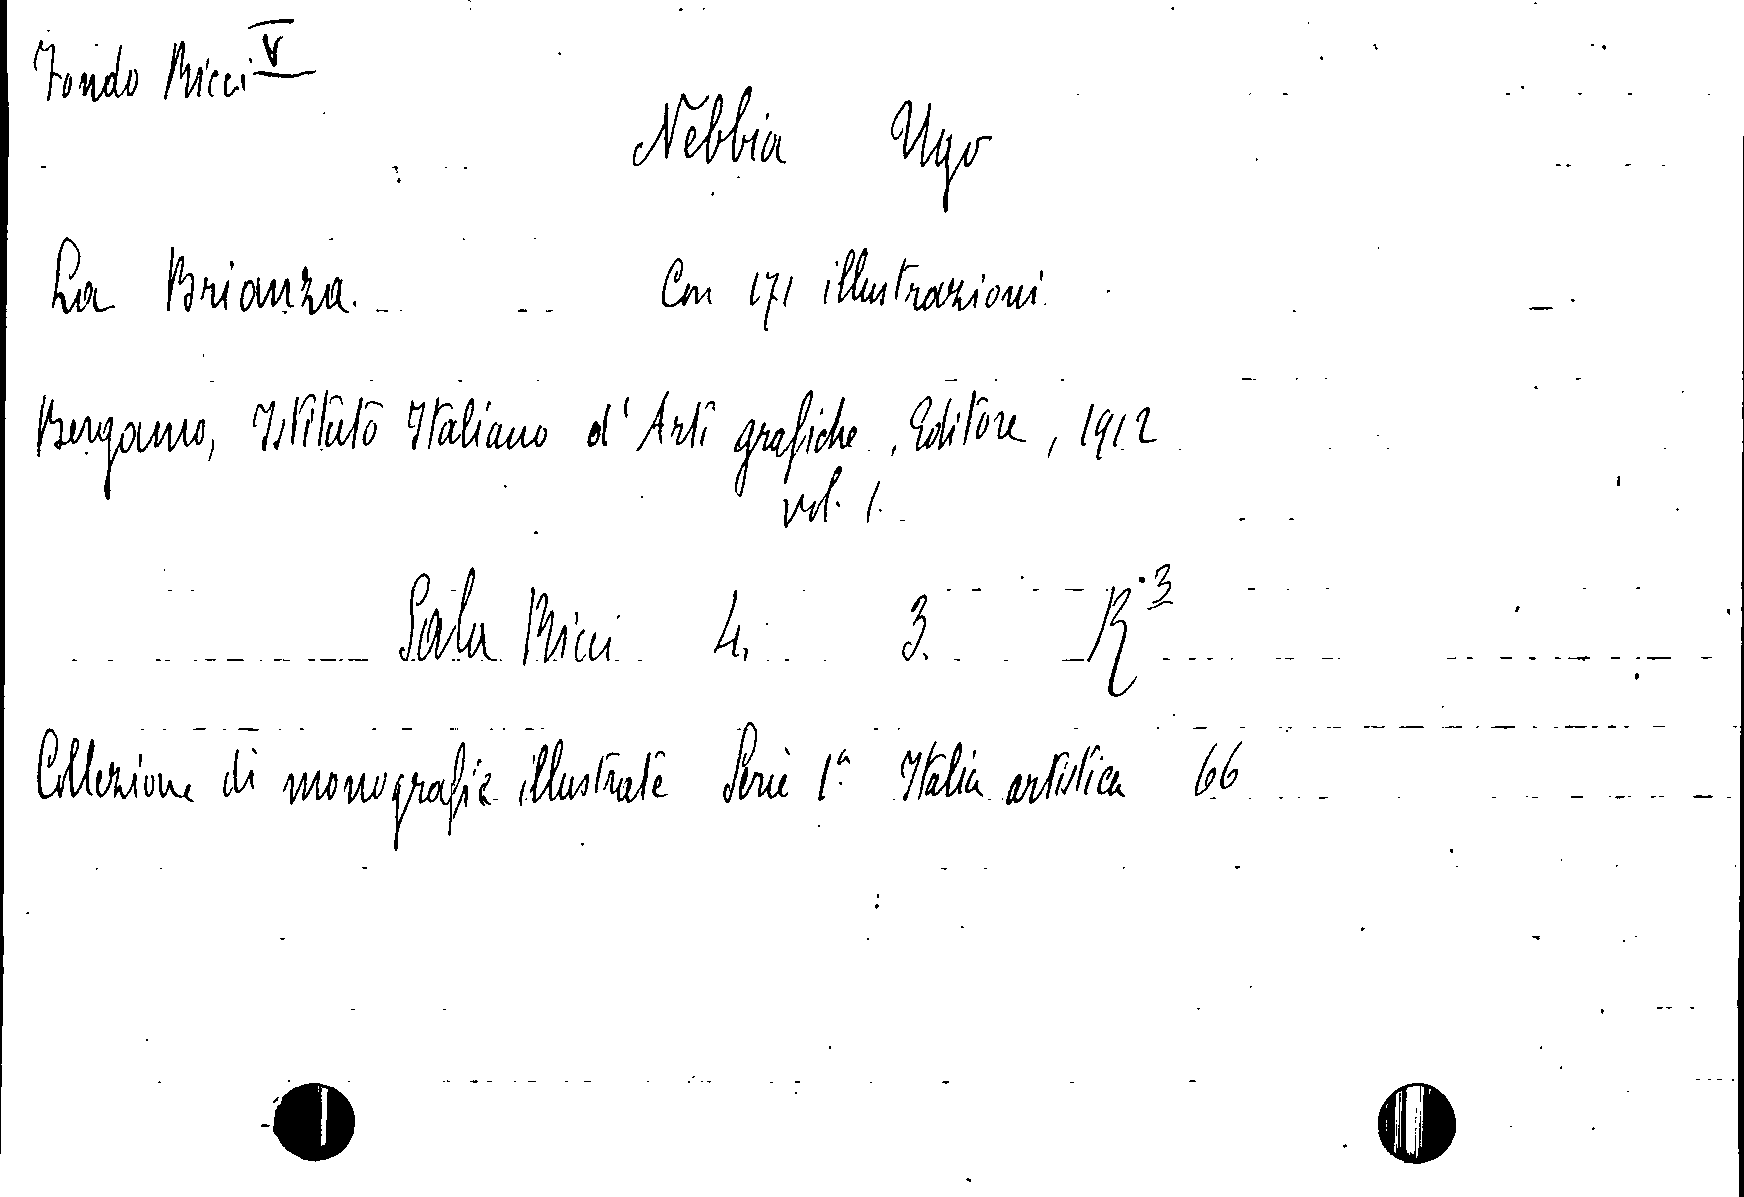 Fondo Ricci V
Nebbia Ugo
La Brianza. Con 171 illustrazioni.
Bergamo, Istituto Italiano d'Arti grafiche, Editore, 1912
vol. 1.
Sala Ricci 4. 3. R.3
Collezione di monografie illustrate Serie 1a Italia artistica 66